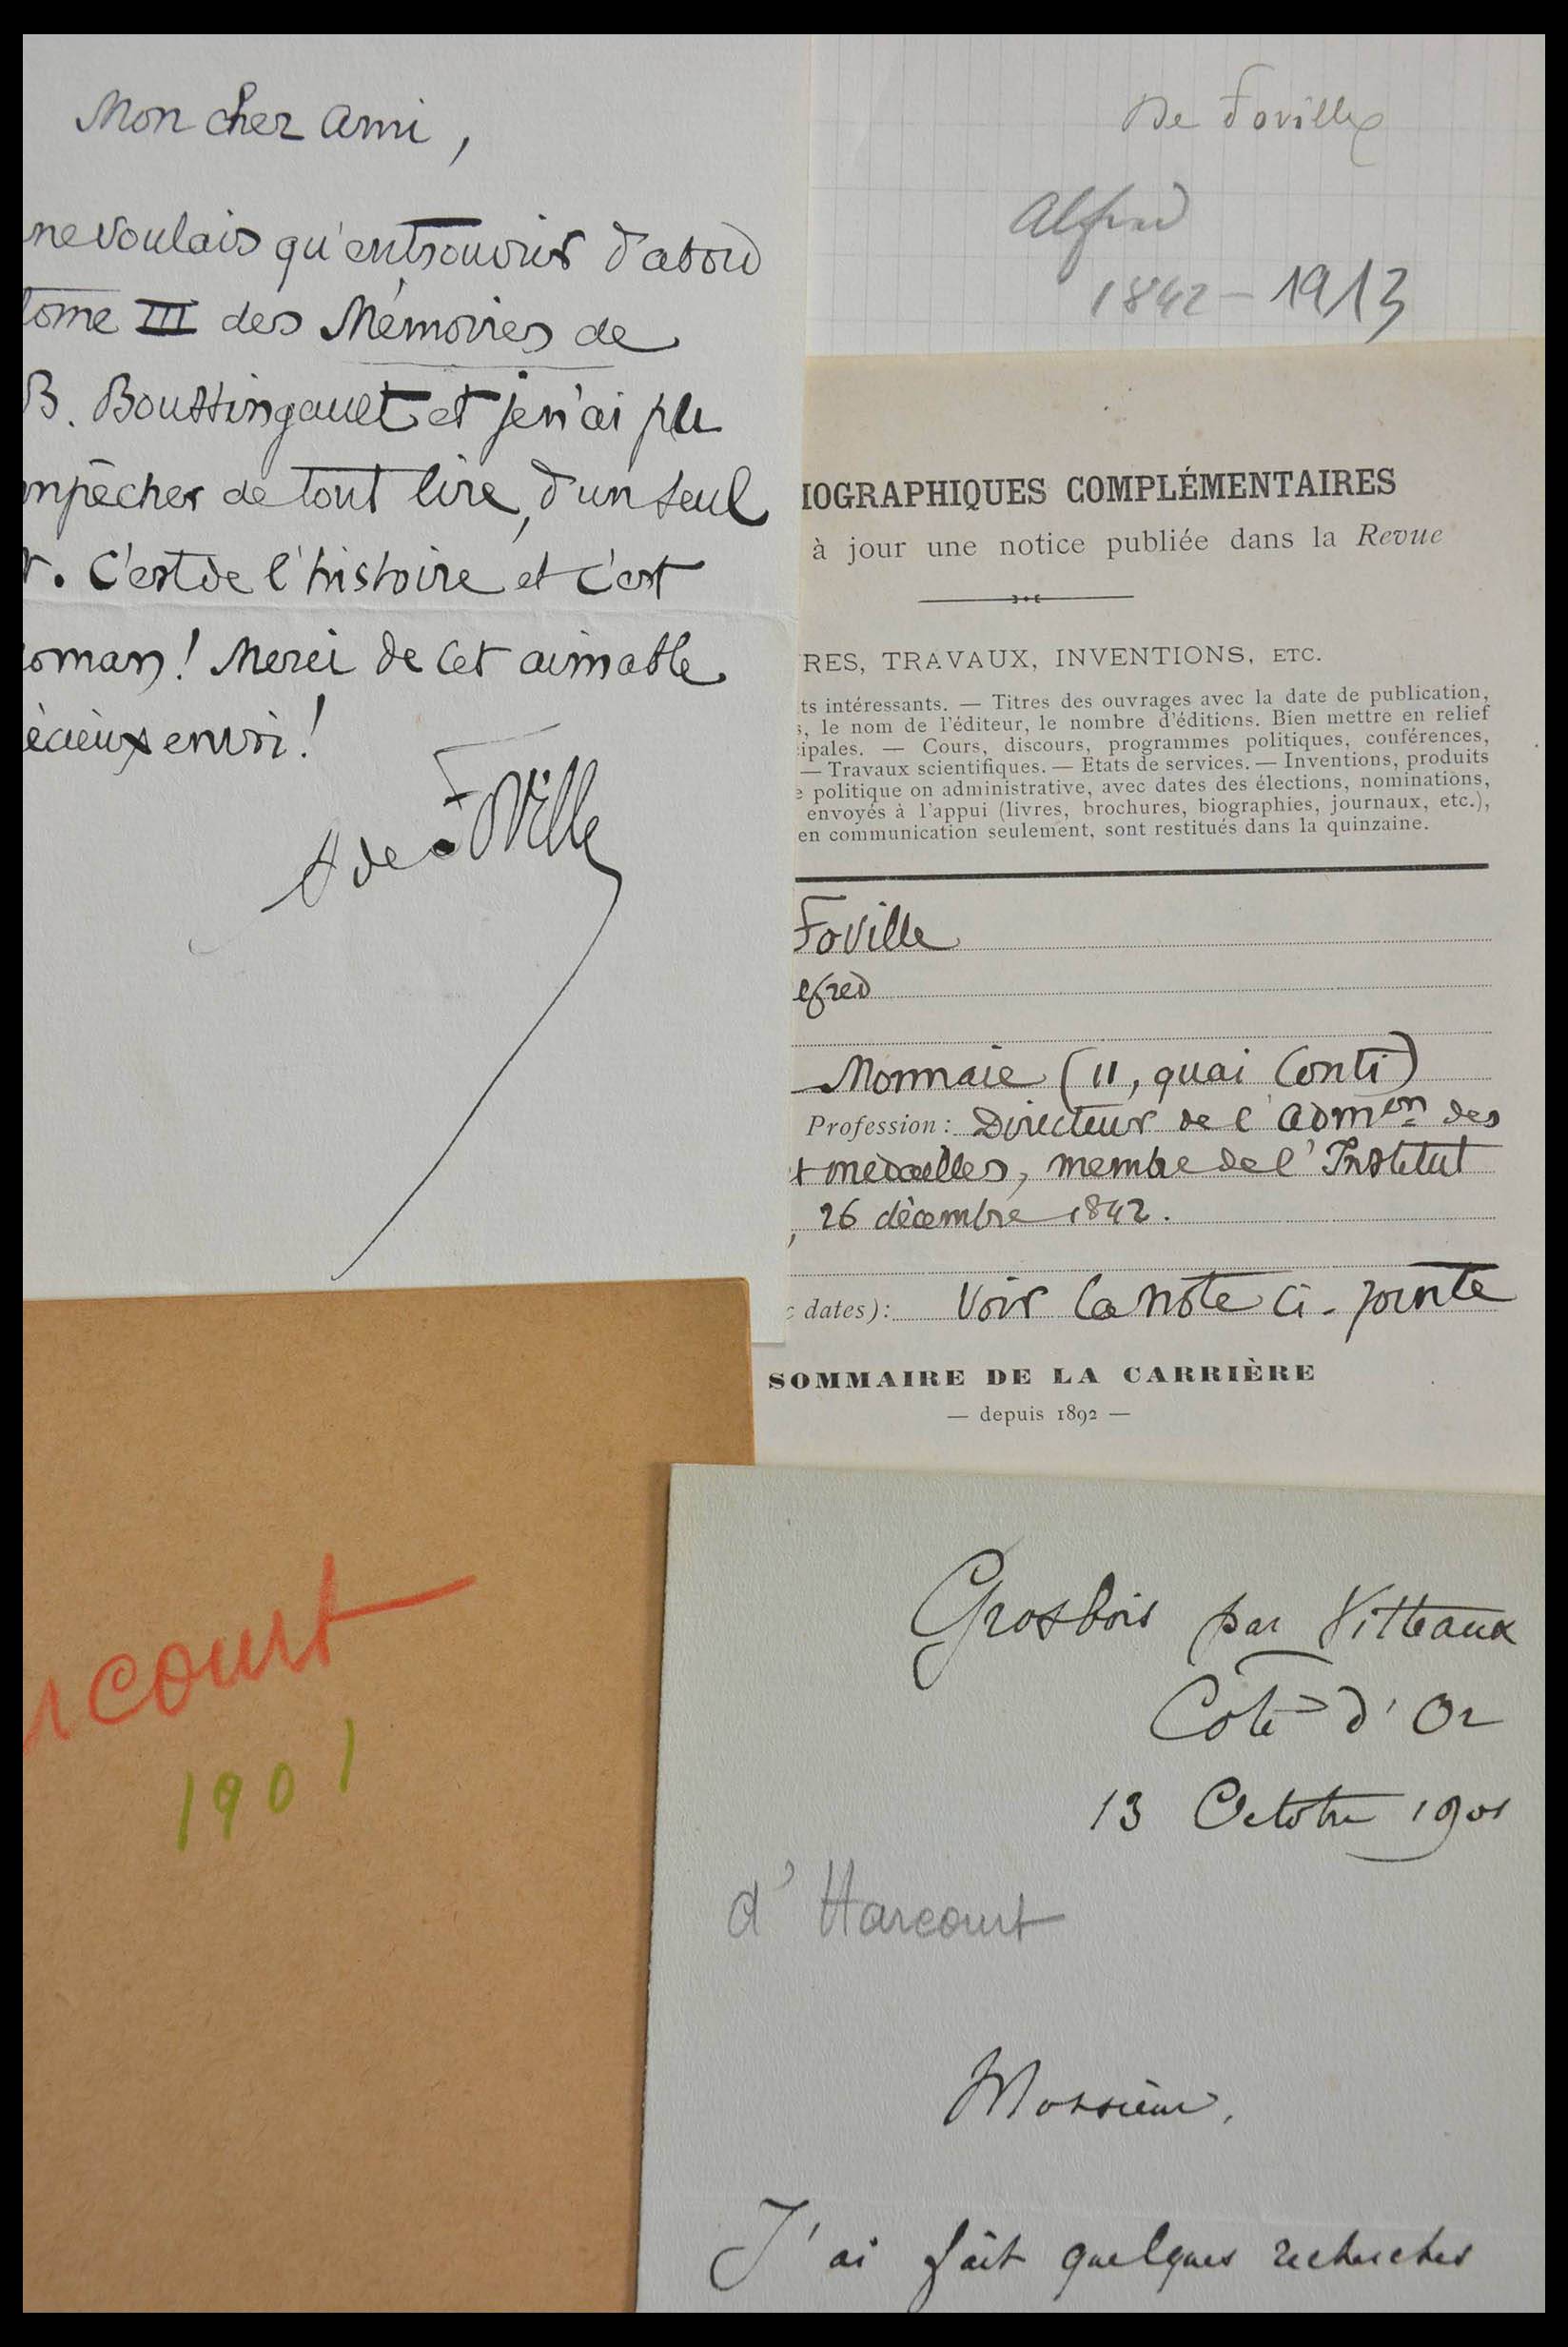 Mon cher ami,
ne voulais qu'entrouvrir d'abord
tome III des Mémoires de
B. Boussingault et je n'ai pu
mpêcher de tout lire, d'un seul
. C'est de l'histoire et c'est
oman! Merci de cet aimable
écieux envoi!
A de Foville
De Foville
Alfred
1842 - 1913
IOGRAPHIQUES COMPLÉMENTAIRES
à jour une notice publiée dans la Revue
RES, TRAVAUX, INVENTIONS, ETC.
ts intéressants. — Titres des ouvrages avec la date de publication,
s, le nom de l'éditeur, le nombre d'éditions. Bien mettre en relief
cipales. — Cours, discours, programmes politiques, conférences,
— Travaux scientifiques. — Etats de services. — Inventions, produits
e politique on administrative, avec dates des élections, nominations,
envoyés à l'appui (livres, brochures, biographies, journaux, etc.),
en communication seulement, sont restitués dans la quinzaine.
Foville
lfred
Monnaie (11, quai Conti)
Profession: Directeur de l'admon des
t médailles, membre de l'Institut
, 26 décembre 1842.
c dates): Voir la note ci-jointe
SOMMAIRE DE LA CARRIÈRE
— depuis 1892 —
rcourt
1901
Grosbois par Vitteaux
Côte d'Or
13 Octobre 1901
d'Harcourt
Monsieur,
J'ai fait quelques recherches